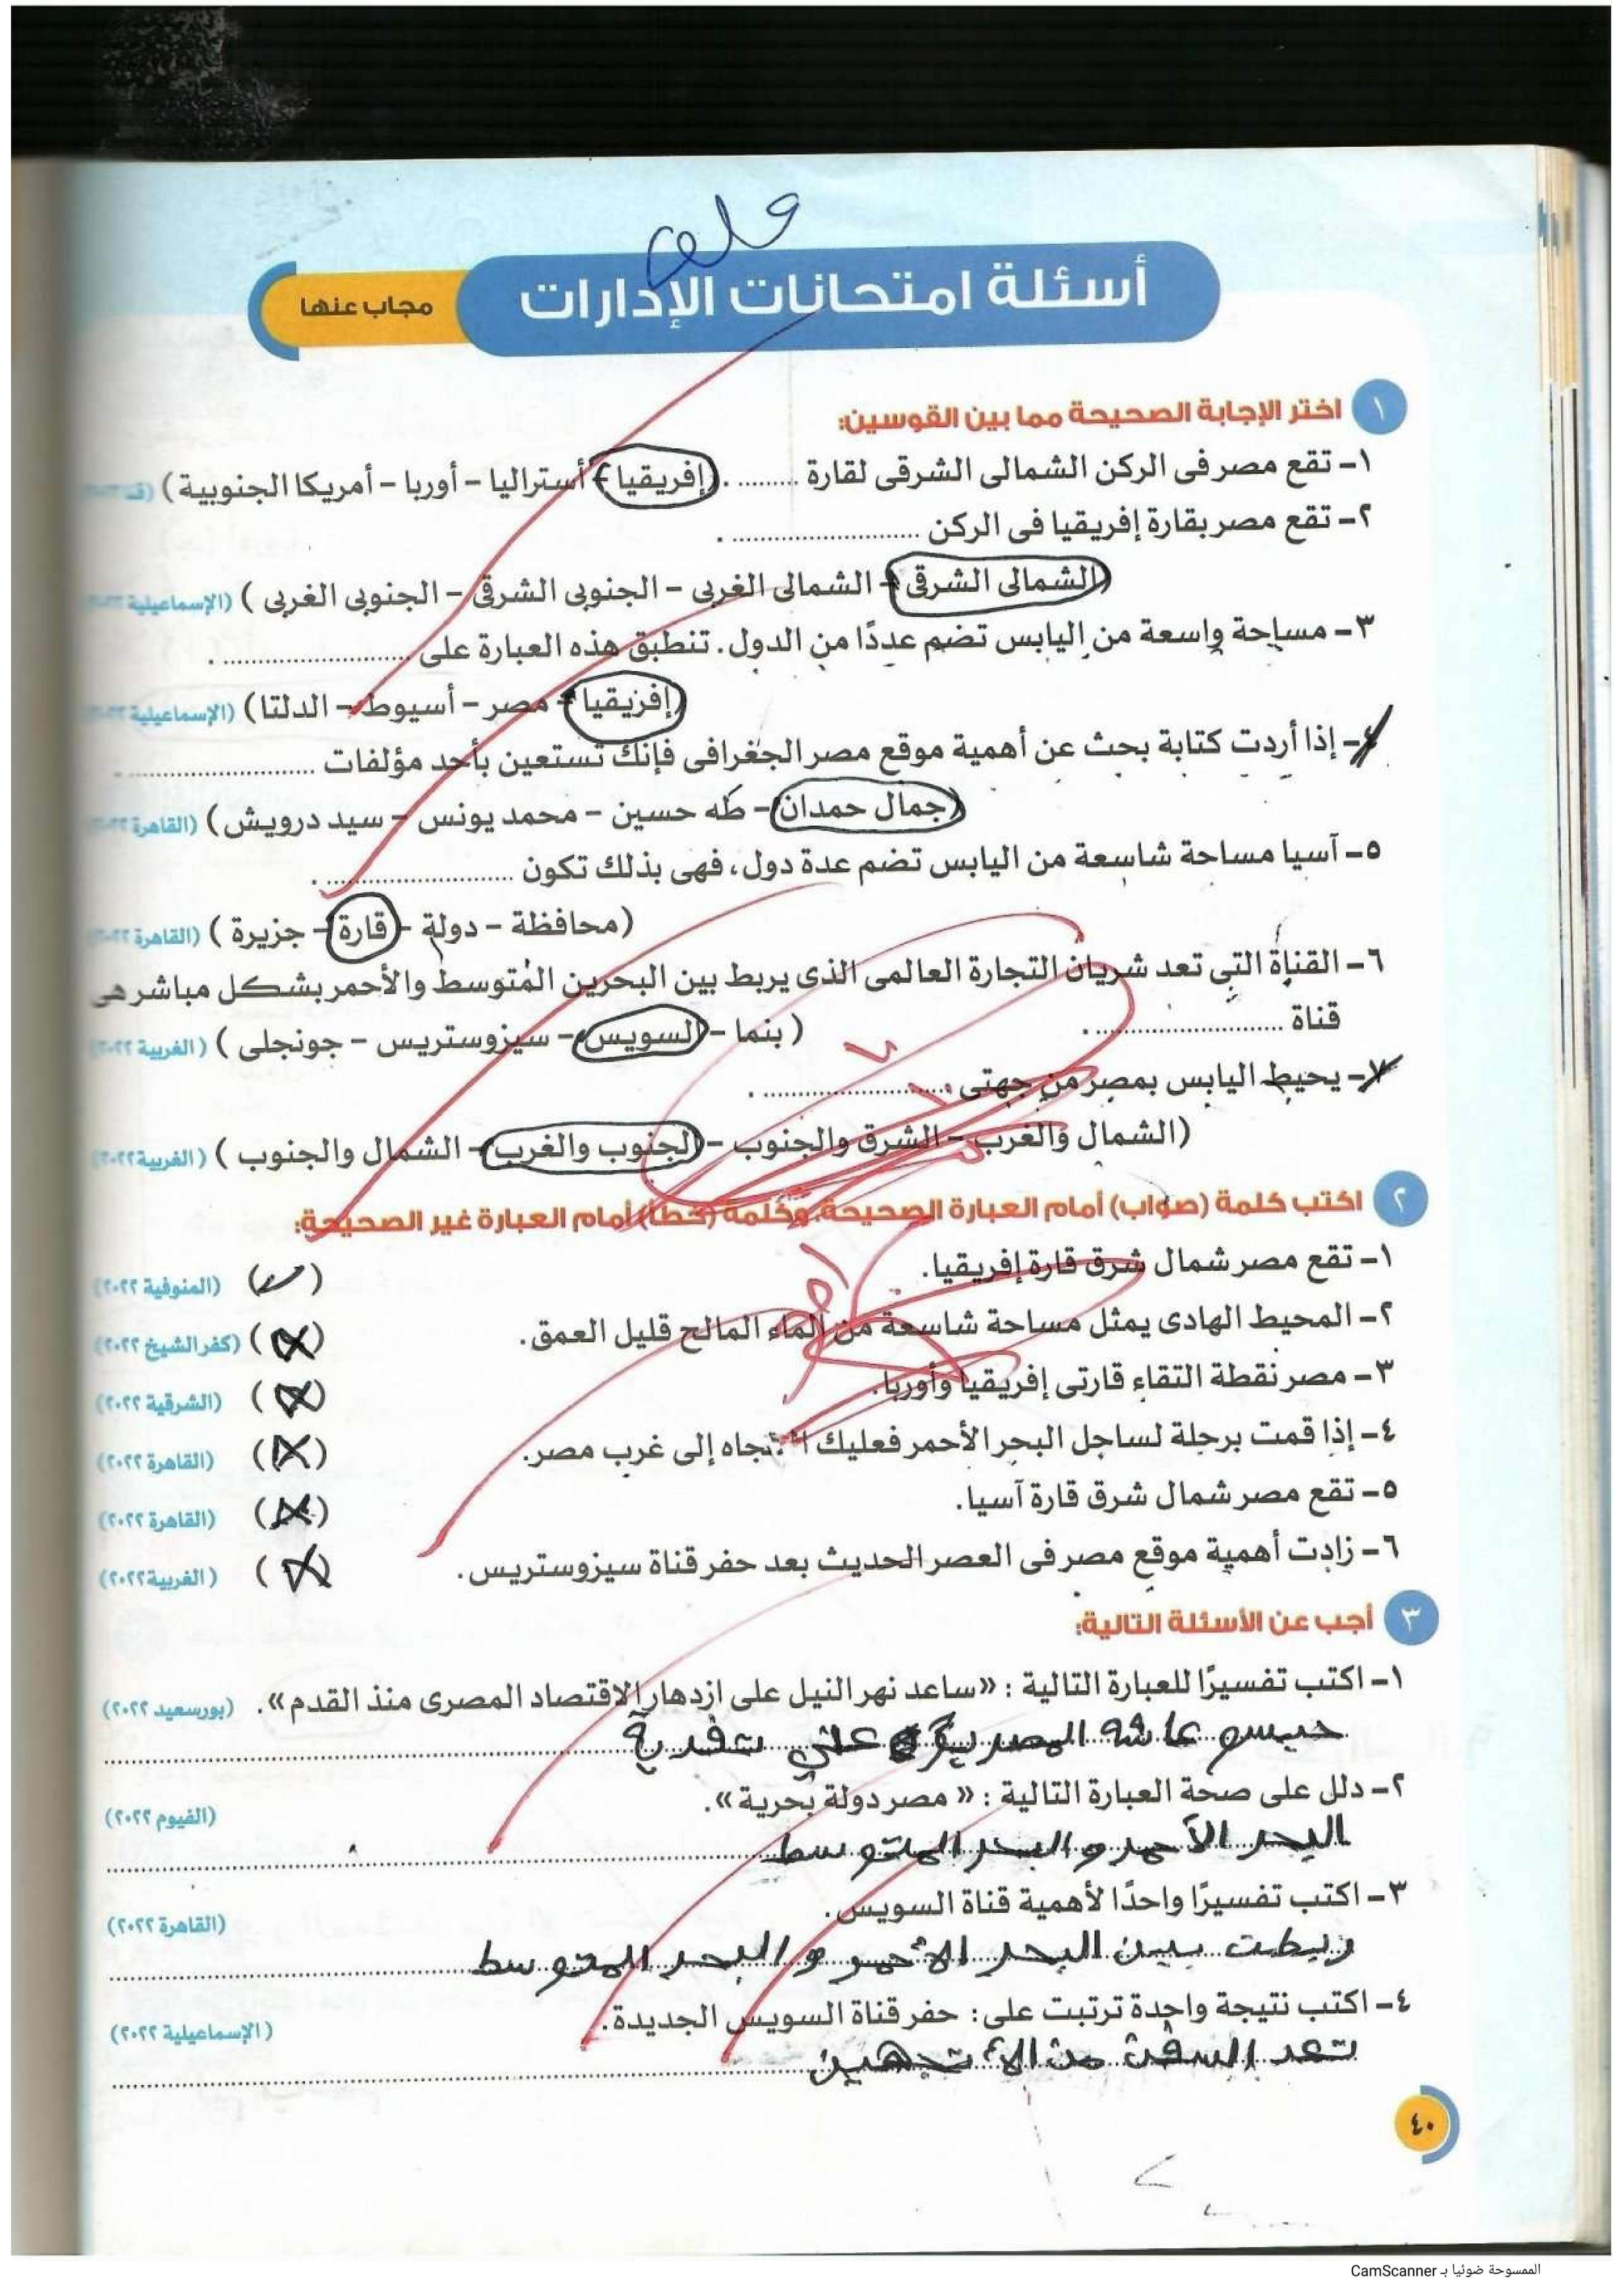 أسئلة امتحانات الإدارات
مجاب عنها
١ اختر الإجابة الصحيحة مما بين القوسين:
١- تقع مصر فى الركن الشمالى الشرقى لقارة ......... . (إفريقيا - أستراليا - أوربا - أمريكا الجنوبية)
٢- تقع مصر بقارة إفريقيا فى الركن ......................... .
(الشمالى الشرقى - الشمالى الغربى - الجنوبى الشرقى - الجنوبى الغربى) (الإسماعيلية
٣- مساحة واسعة من اليابس تضم عددًا من الدول. تنطبق هذه العبارة على ......................... .
(إفريقيا - مصر - أسيوط - الدلتا) (الإسماعيلية
٤- إذا أردت كتابة بحث عن أهمية موقع مصر الجغرافى فإنك تستعين بأحد مؤلفات ......................... .
(جمال حمدان - طه حسين - محمد يونس - سيد درويش) (القاهرة
٥- آسيا مساحة شاسعة من اليابس تضم عدة دول، فهى بذلك تكون ......................... .
(محافظة - دولة - قارة - جزيرة) (القاهرة ٢٠٢٢)
٦- القناة التى تعد شريان التجارة العالمى الذى يربط بين البحرين المتوسط والأحمر بشكل مباشر هى
قناة ......................... . (بنما - السويس - سيزوستريس - جونجلى) (الغربية ٢٠٢٢)
٧- يحيط اليابس بمصر من جهتى ......................... .
(الشمال والغرب - الشرق والجنوب - الجنوب والغرب - الشمال والجنوب) (الغربية ٢٠٢٢)
٢ اكتب كلمة (صواب) أمام العبارة الصحيحة، وكلمة (خطأ) أمام العبارة غير الصحيحة:
١- تقع مصر شمال شرق قارة إفريقيا. (✓) (المنوفية ٢٠٢٢)
٢- المحيط الهادى يمثل مساحة شاسعة من الماء المالح قليل العمق. (X) (كفر الشيخ ٢٠٢٢)
٣- مصر نقطة التقاء قارتى إفريقيا وأوربا. (X) (الشرقية ٢٠٢٢)
٤- إذا قمت برحلة لساحل البحر الأحمر فعليك الاتجاه إلى غرب مصر. (X) (القاهرة ٢٠٢٢)
٥- تقع مصر شمال شرق قارة آسيا. (X) (القاهرة ٢٠٢٢)
٦- زادت أهمية موقع مصر فى العصر الحديث بعد حفر قناة سيزوستريس. (X) (الغربية ٢٠٢٢)
٣ أجب عن الأسئلة التالية:
١- اكتب تفسيرًا للعبارة التالية: «ساعد نهر النيل على ازدهار الاقتصاد المصرى منذ القدم». (بورسعيد ٢٠٢٢)
٢- دلل على صحة العبارة التالية: «مصر دولة بحرية». (الفيوم ٢٠٢٢)
البحر الأحمر و البحر المتوسط
٣- اكتب تفسيرًا واحدًا لأهمية قناة السويس. (القاهرة ٢٠٢٢)
ربطت بين البحر الأحمر و البحر المتوسط
٤- اكتب نتيجة واحدة ترتبت على: حفر قناة السويس الجديدة. (الإسماعيلية ٢٠٢٢)
السفن من
٤٠
الممسوحة ضوئيا بـ CamScanner